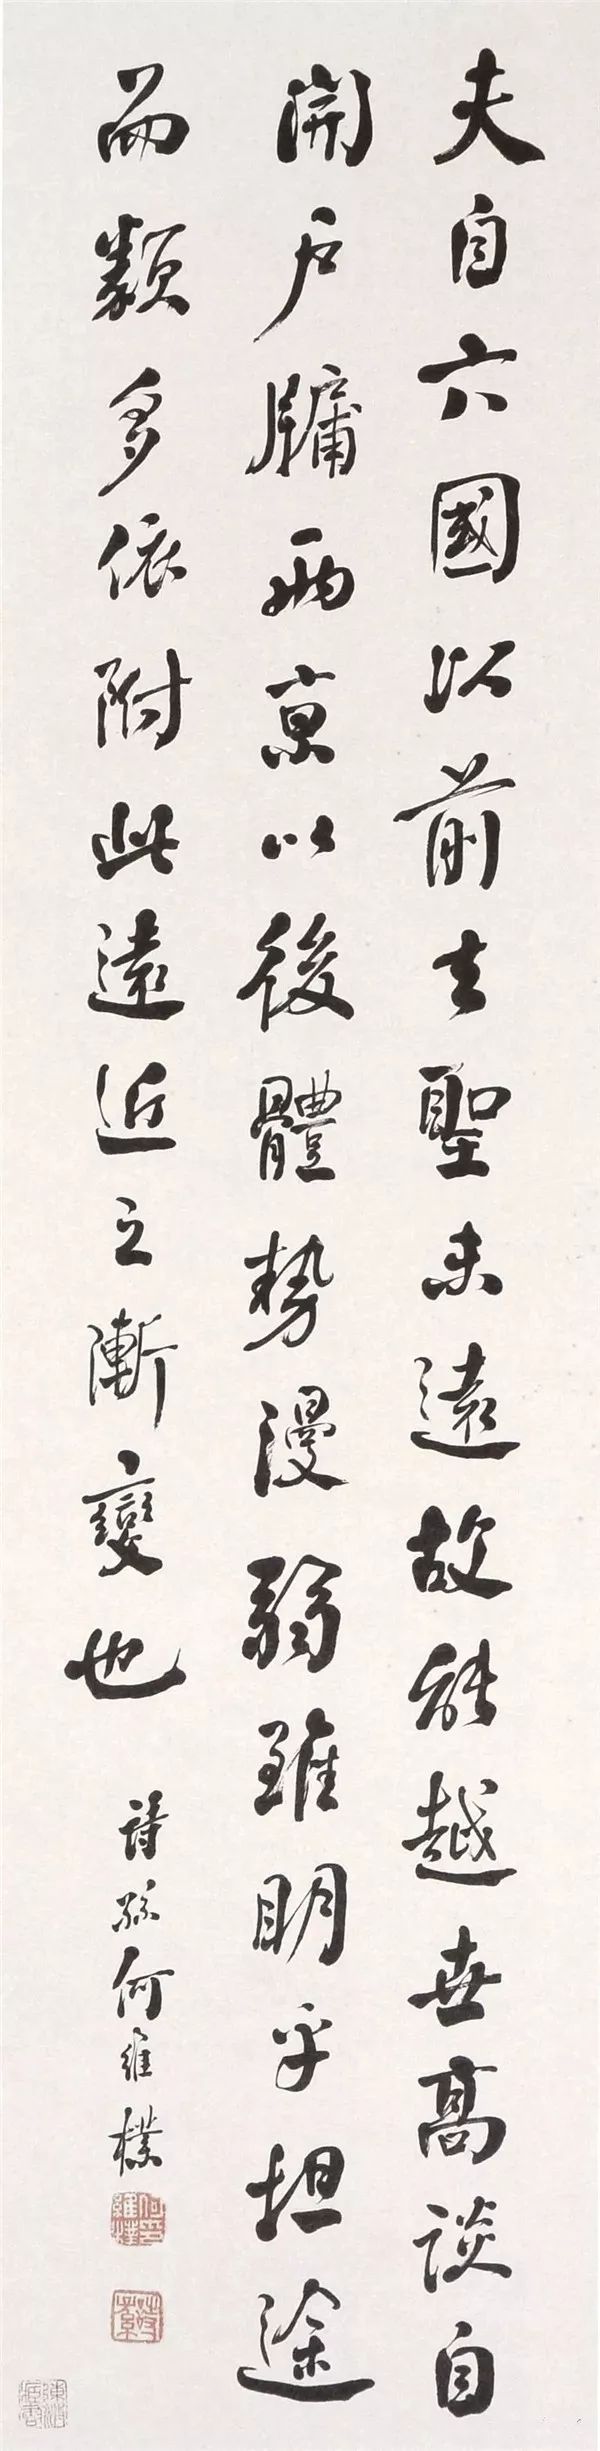 夫自六國以前去聖未遠故能越世高談自
開戶牖兩京以後體勢漫弱雖明乎坦途
而類多依附此遠近之漸變也
詩孫何維樸
何維樸印
詩孫